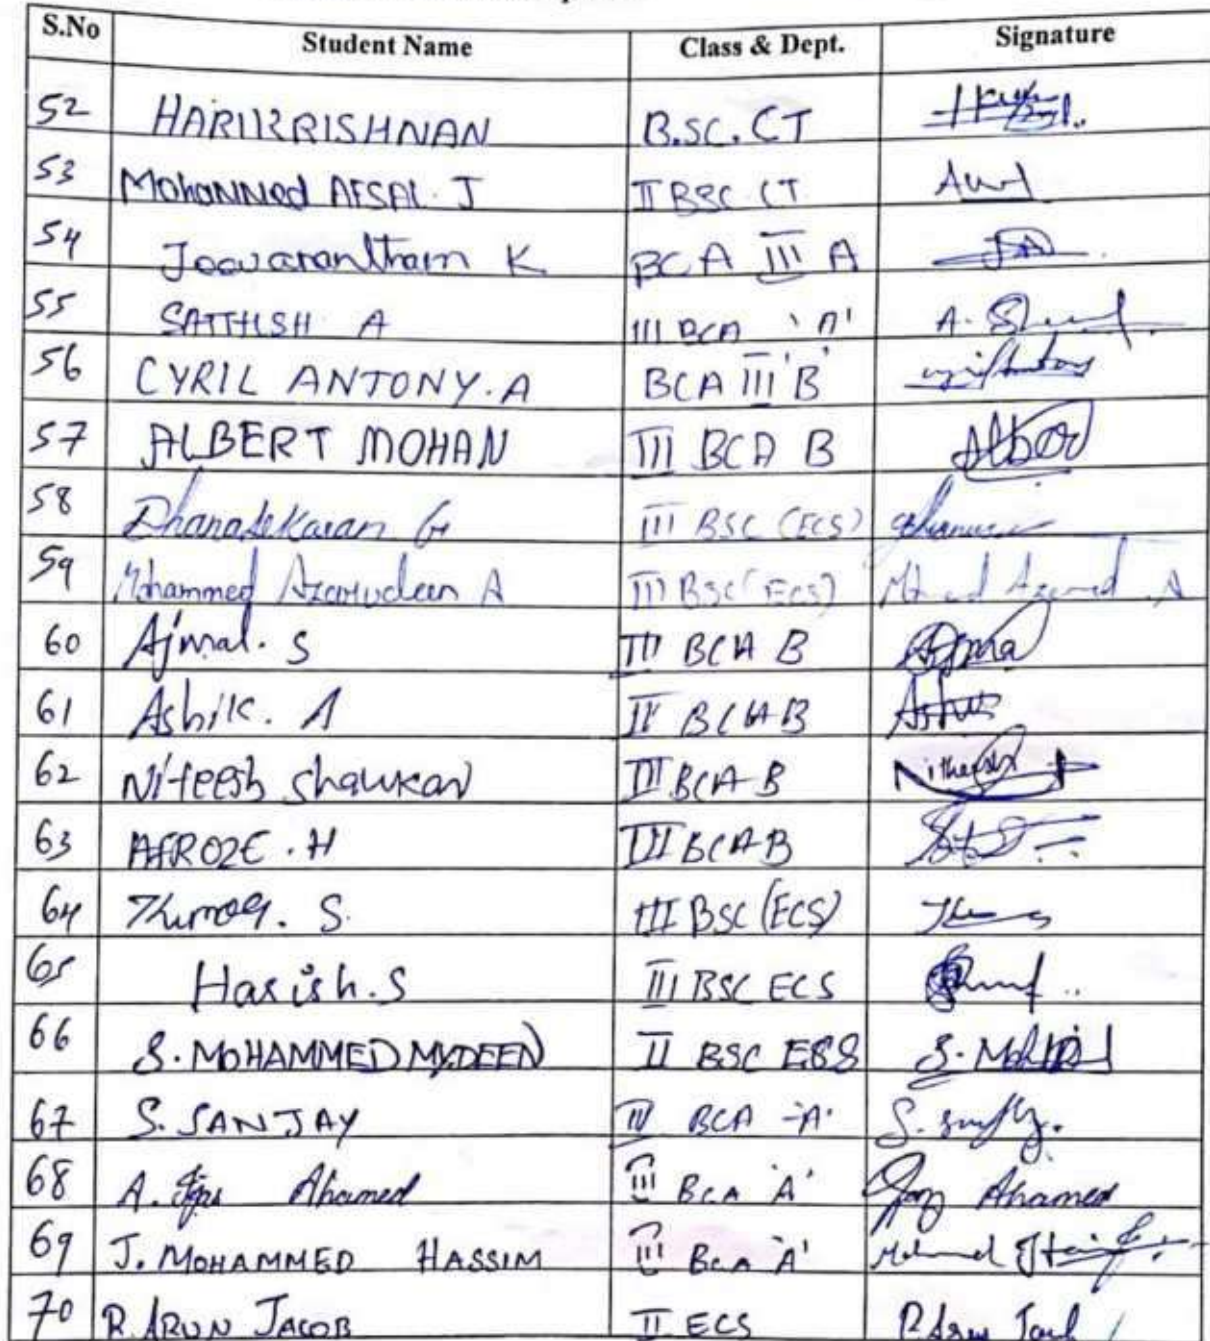 S.No Student Name Class & Dept. Signature
52 HARIKRISHNAN B.SC. CT
53 Mohanned AFSAL. J II BSC. CT
54 Joovarantham K BCA III A
55 SATTHISH A III BCA 'A' A.
56 CYRIL ANTONY. A BCA III 'B'
57 ALBERT MOHAN III BCA B Albert
58 Dhanasekaran G III BSC (ECS)
59 Mohammed Azarudeen A III BSC (ECS)
60 Ajmal. S III BCA B Ajmal
61 Ashik. A II BCA B
62 Niteesh Shawkar III BCA B Nitheesh
63 AFROZE . H III BCA B
64 S. III BSC (ECS)
65 Harish. S III BSC ECS
66 S. MOHAMMED MYDEEN II BSC ECS S.
67 S. SANJAY BCA 'A' S.
68 A. Ahamed III BCA 'A' Ahamed
69 J. MOHAMMED HASSIM III BCA 'A'
70 R. ARUN JACOB II ECS